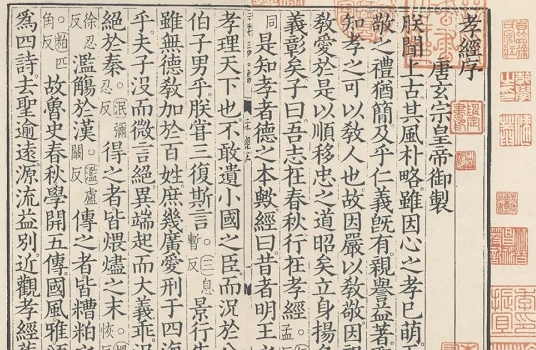 孝經序
唐玄宗皇帝御製
朕聞上古其風朴略雖因心之孝已萌
敬之禮猶簡及乎仁義旣有親譽益著
知孝之可以敎人也故因嚴以敎敬因
敎愛於是以順移忠之道昭矣立身揚名
義彰矣子曰吾志在春秋行在孝經。孟
同是知孝者德之本歟經曰昔者明王
孝理天下也不敢遺小國之臣而況於
伯子男乎朕嘗三復斯言。三息暫反景行
雖無德敎加於百姓庶幾廣愛刑于四海
乎夫子沒而微言絕異端起而大義乖
絕於秦。泯彌忍反得之者皆煨燼之末
徐忍反濫觴於漢。濫盧闞反傳之者皆糟粕
。粕匹角反故魯史春秋學開五傳國風雅
爲四詩去聖逾遠源流益別近觀孝經